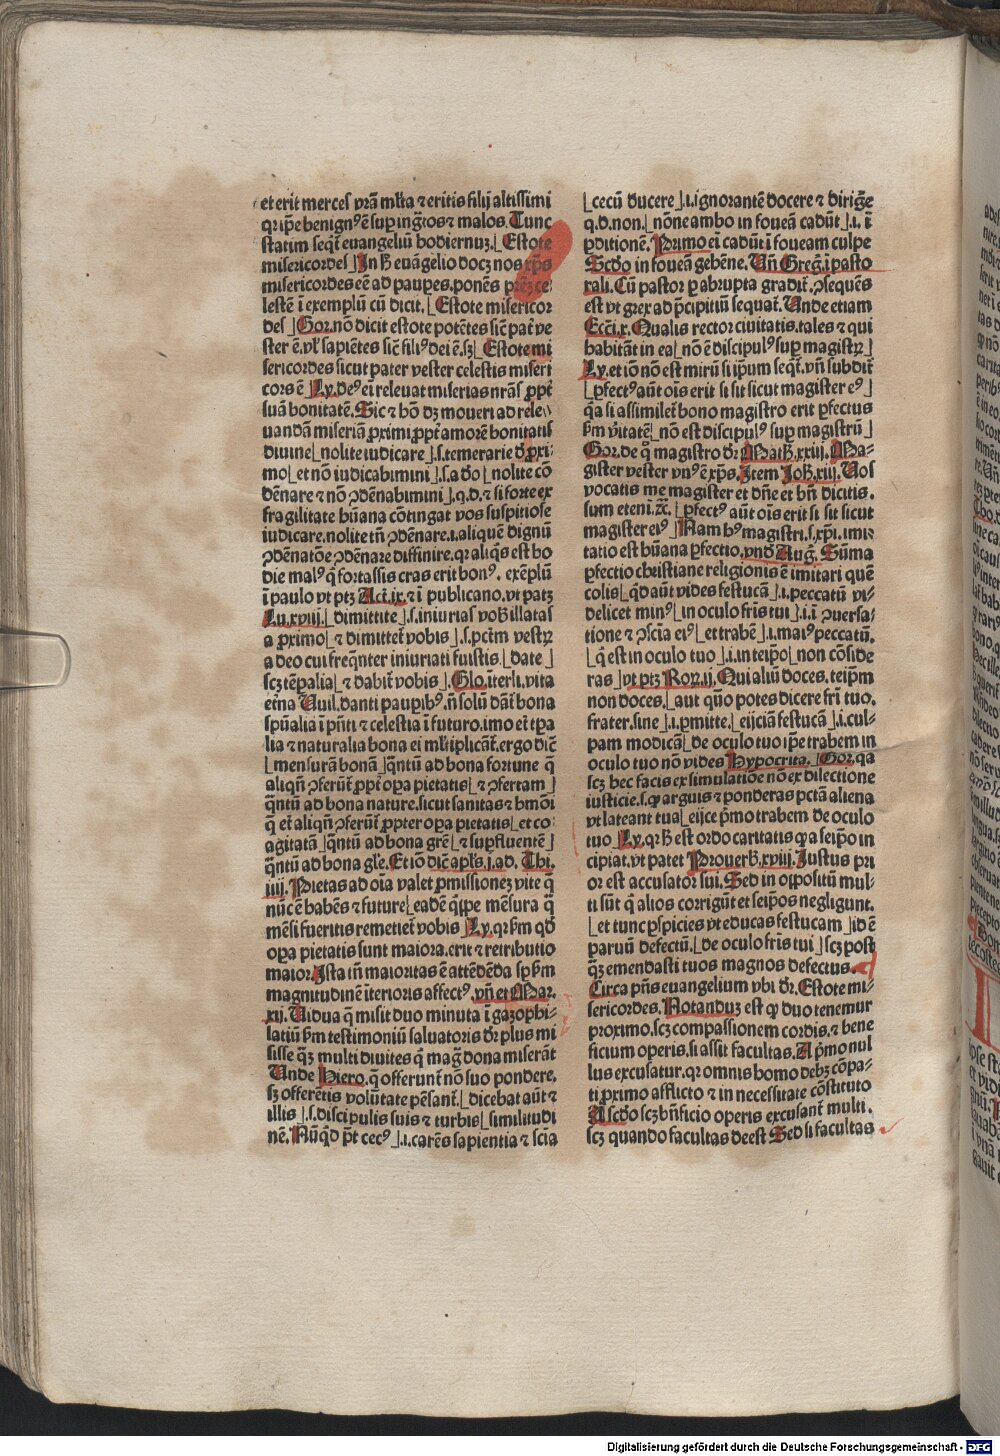 et erit merces vr̄a ml̄ta ⁊ eritis filij altissimi
qr ip̄e benignꝰ ē sup̄ ingr̄tos ⁊ malos. Tunc
statim seqt̄ euangeliū hodiernuꝫ. ⌊Estote
misericordes⌋ In h̄ euāgelio docꝫ nos xp̄s
misericordes eē ad paup̄es. ponēs pr̄eꝫ ce
lestē ī exemplū cū dicit. ⌊Estote misericor
des⌋ Gor. nō dicit estote potētes sic̄ pat̄ ve
ster ē. vl̓ sapiētes sic̄ filiꝰ dei ē. sꝫ ⌊Estote mi
sericordes sicut pater vester celestis miseri
cors ē⌋ Ly. deꝰ ei releuat miserias nr̄as ꝓpt̄
suā bonitatē. Sic ⁊ hō dꝫ moueri ad rele⸗
uandā miseriā ꝓximi ꝓpt̄ amorē bonitatis
diuine ⌊nolite iudicare⌋ .s. temerarie d̄ ꝓxi⸗
mo ⌊et nō iudicabimini⌋ .s. a dō ⌊nolite cō
dēnare ⁊ nō ↄdēnabimini⌋ .q.d. ⁊ si forte ex
fragilitate hūana cōtingat vos suspitiose
iudicare. nolite tn̄ ↄdēnare .i. aliquē dignū
ↄdēnatōe ↄdēnare diffinire. qr aliqs̄ est ho
die malꝰ q̄ fortassis cras erit bonꝰ. exēplū
ī paulo vt ptꝫ Act̄. ix. ⁊ ī publicano. vt patꝫ
Lu. xviij. ⌊dimittite⌋ .s. iniurias vob̄ illatas
a ꝓximo ⌊⁊ dimittet̄ vobis⌋ .s. pctm̄ vestrꝫ
a deo cui freqn̄ter iniuriati fuistis. ⌊date⌋
scꝫ tēp̄alia ⌊⁊ dabit̄ vobis⌋ Glo. īterli. vita
etn̄a Uuil. danti paup̄ibꝰ. n̄ solū dāt̄ bona
spūalia ī pn̄ti ⁊ celestia ī futuro. imo et tp̄a
lia ⁊ naturalia bona ei ml̄tiplicāt̄. ergo dic̄
⌊mensurā bonā⌋ qn̄tū ad bona fortune q̄
aliqn̄ ↄferūt̄ ꝓpt̄ oꝑa pietatis ⌊⁊ ↄfertam⌋
qn̄tū ad bona nature. sicut sanitas ⁊ hmōi
q̄ et̄ aliqn̄ ↄferūt̄ ꝓpter oꝑa pietatis ⌊et co⸗
agitatā⌋ qn̄tū ad bona grē ⌊⁊ sup̄fluentē⌋
qn̄tū ad bona gle̓. Et iō dic̄ apl̓s. j. ad. Thi.
iiij. Pietas ad oīa valet ꝓmissioneꝫ vite q̄
nūc ē habēs ⁊ future ⌊eadē qͥppe mēsura q̄
mēsi fueritis remetiet̄ vobis⌋ Ly. qr hm̄ qd̄
oꝑa pietatis sunt maiora. erit ⁊ retributio
maior. Ista tn̄ maioritas ē attēdēda sp̄ hm̄
magnitudinē īterioris affectꝰ. vn̄ et Mar.
xij. Uidua q̄ misit duo minuta ī gazophi⸗
latiū hm̄ testimoniū saluatoris dr̄ plus mi
sisse qꝫ̄ multi diuites q̄ mag̓ dona miserāt
Unde Hiero. q̄ offerunt̄ nō suo pondere.
sꝫ offerētis volūtate pēsant̄. ⌊dicebat aūt ⁊
illis⌋ .s. discipulis suis ⁊ turbis ⌊similitudi
nē. Nūqd̄ pt̄ cecꝰ⌋ .i. carēs sapientia ⁊ scīa
⌊cecū ducere⌋ .i. ignorantē docere ⁊ dirig̓e
q.d. non. ⌊nōne ambo in foueā cadūt⌋ .i. ī
ꝑditionē. Primo ei cadūt ī foueam culpe
Scd̓o in foueā gehēne. Un̄ Greg̓. ī pasto
rali. Cū pastor ꝑ abrupta gradit̄. ↄsequēs
est vt grex ad p̄cipitiū sequat̄. Unde etiam
Ecci̓. x. Qualis rector ciuitatis. tales ⁊ qui
habitāt in ea ⌊nō ē discipulꝰ sup̄ magistrꝫ⌋
Ly. et iō nō est mirū si ip̄um seqt̄. vn̄ subdit̄
⌊ꝑfectꝰ aūt oīs erit si sit sicut magister eꝰ⌋
qa si assimilet̄ bono magistro erit ꝑfectus
hm̄ v̓itatē ⌊nō est discipulꝰ sup̄ magistrū⌋
Gor. de q̄ magistro dr̄. Math̓. xxiij. Ma⸗
gister vester vnꝰ ē xp̄s. Item Joh̓. xiij. Uos
vocatis me magister et dn̄e et bn̄ dicitis.
sum eteni. ⁊c̄. ⌊ꝑfectꝰ aūt oīs erit si sit sicut
magister eiꝰ⌋ Nam hꝰ magistri .s. xp̄i. imi⸗
tatio est hūana ꝑfectio. vnd̓ Aug̓. Sūma
ꝑfectio christiane religionis ē imitari quē
colis ⌊qd̄ aūt vides festucā⌋ .i. peccatū vi⸗
delicet minꝰ ⌊in oculo fr̄is tui⌋ .i. ī ↄuersa⸗
tione ⁊ ↄscīa eiꝰ ⌊et trabē⌋ .i. maiꝰ peccatū.
⌊q̄ est in oculo tuo⌋ .i. in teip̄o ⌊non cōside
ras⌋ vt ptꝫ Roꝫ. ij. Qui aliū doces. teip̄m
non doces. ⌊aut quō potes dicere fr̄i tuo.
frater. sine⌋ .i. ꝑmitte. ⌊eijciā festucā⌋ .i. cul⸗
pam modicā ⌊de oculo tuo ip̄e trabem in
oculo tuo nō vides⌋ Hypocrita. ⌋Gor. qa
scꝫ hec facis ex simulatiōe nō ex dilectione
iusticie. s. ꝙ arguis ⁊ ponderas pctā aliena
vt lateant tua ⌊eijce p̄mo trabem de oculo
tuo⌋ Ly. qr h̄ est ordo caritatis ꝙ a seip̄o in
cipiat. vt patet Prouerb̓. xviij. Justus pri
or est accusator sui. Sed in oppositū mul⸗
ti sūt q̄ alios corrigūt et seip̄os negligunt.
⌊et tunc ꝑspicies vt educas festucam⌋ id ē
paruū defectū. ⌊de oculo fr̄is tui⌋ scꝫ post
qꝫ̄ emendasti tuos magnos defectus.
Circa pn̄s euangelium vbi dr̄. Estote mi⸗
sericordes. Notanduꝫ est ꝙ duo tenemur
proximo. scꝫ compassionem cordis. ⁊ bene
ficium operis. si assit facultas. A p̄mo nul
lus excusatur. qr omnis homo debꝫ cōpa⸗
ti ꝓximo afflicto ⁊ in necessitate cōstituto
A scd̓o scꝫ bn̄ficio operis excusant̄ multi.
scꝫ quando facultas deest Sed si facultas
Digitalisierung gefördert durch die Deutsche Forschungsgemeinschaft - DFG